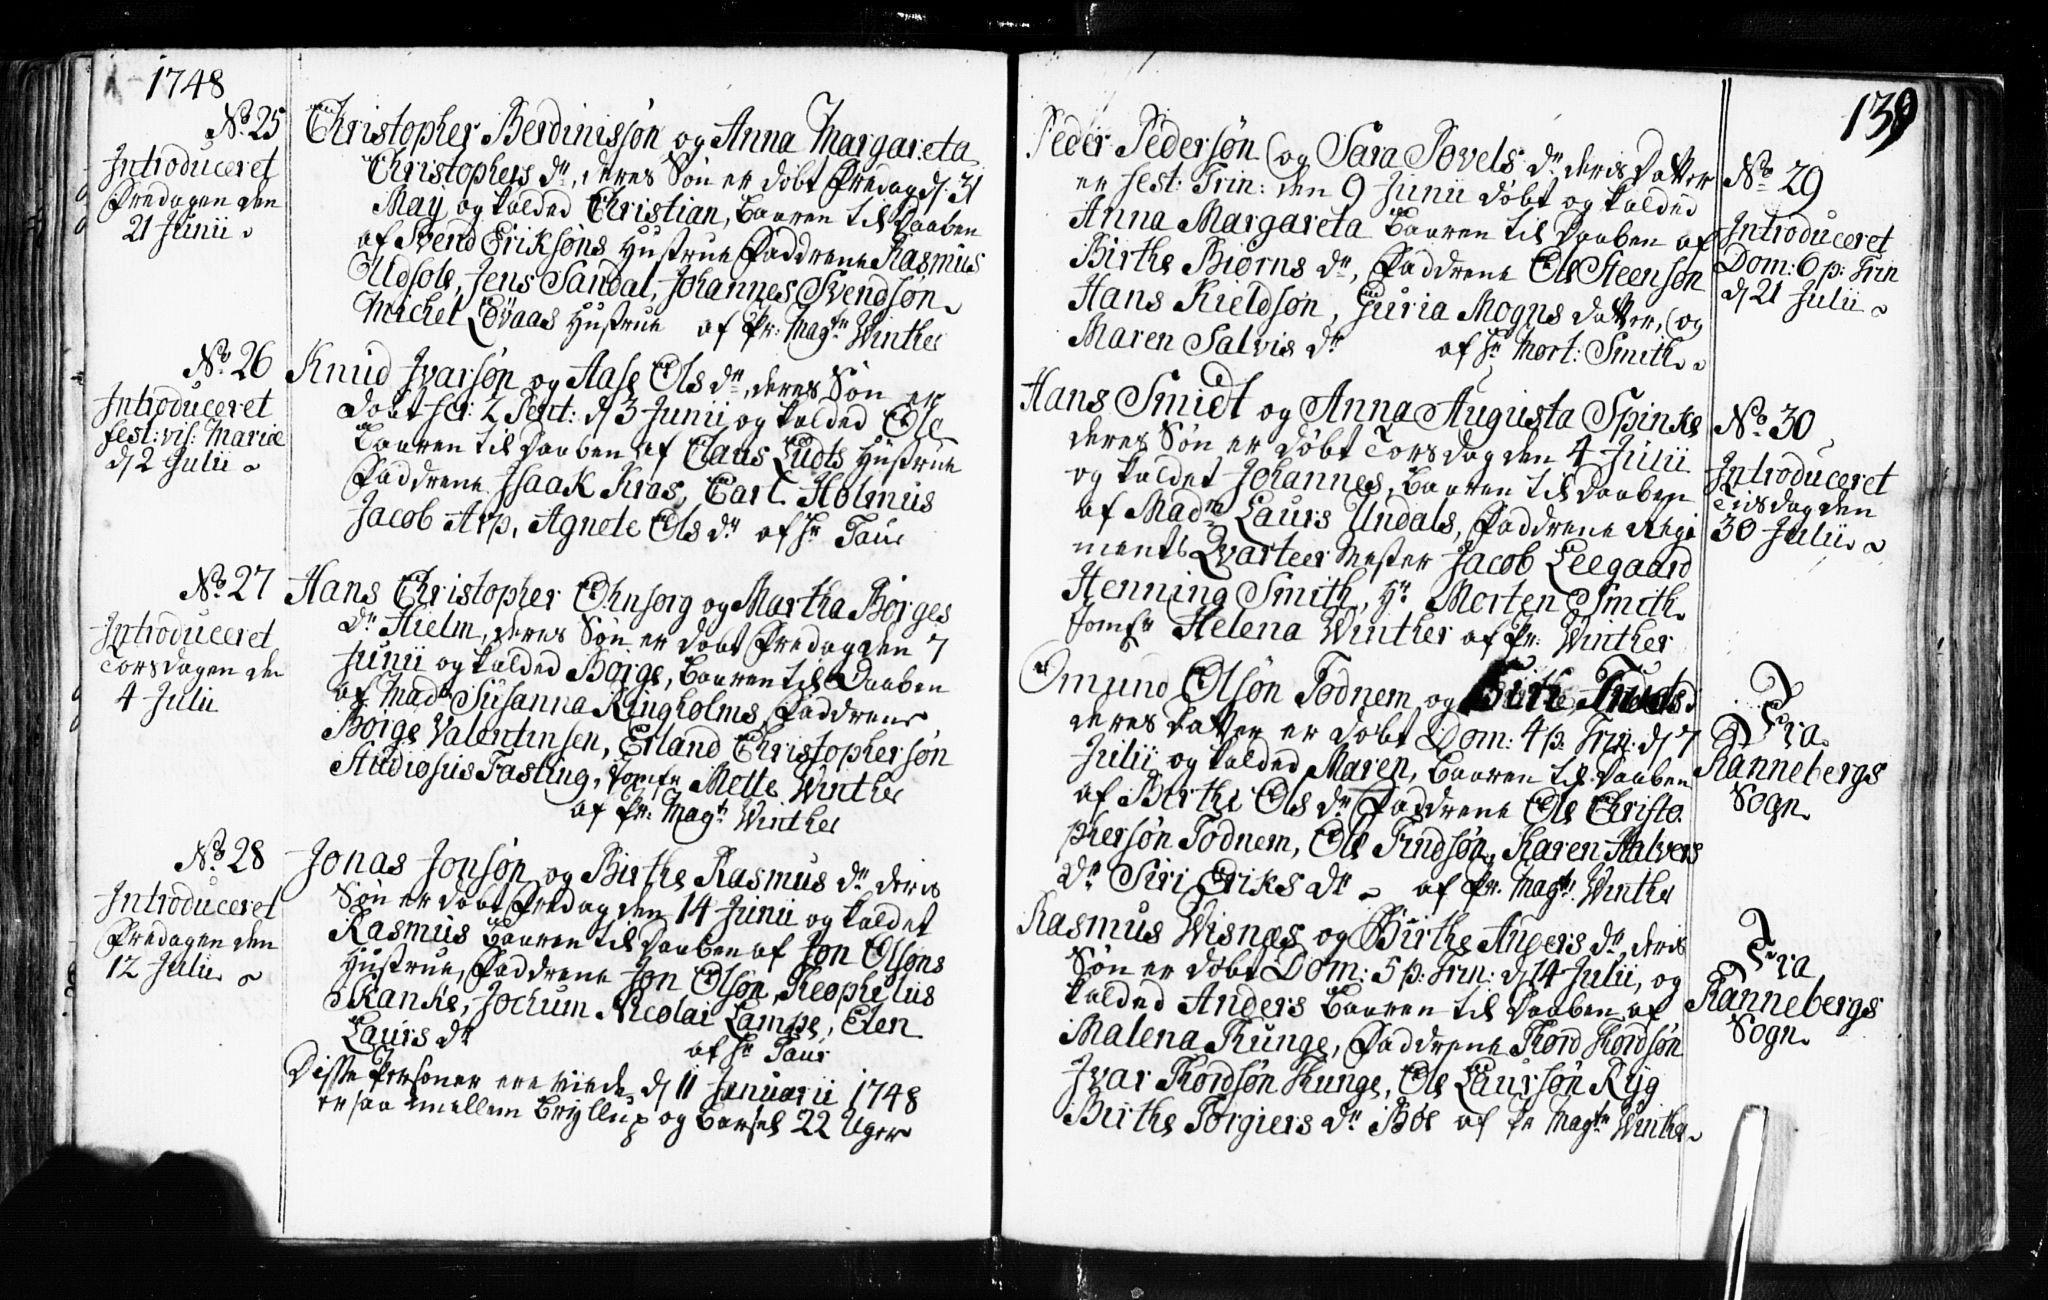 1748
No 25
Introduceret
Fredagen den
21 Junii
Christopher Berdinissøn og Anna Margareta
Christophers dr, deres Søn er døbt Fredag d: 31
Maij og kalded Christian, Baaren til Daaben
af Svend Eriksøns Hustrue Faddrene Rasmus
Udsole, Jens Sandal, Johannes Svendsøn
Michel Løvaas Hustrue af Pr: Magtr Winther
No 26
Introduceret
fest: vis: Mariæ
d 2 Julii
Knud Ivarsøn og Aase Ols dr, deres Søn er
døbt fer: 2 Pent: d 3 Junii og kalded Ole
Baaren til Daaben af Claus Ludts Hustrue
Faddrene Isaak Kras, Carl Holmus
Jacob Arp, Agnete Ols dr af Hr Taui
No 27
Introduceret
Torsdagen den
4 Julii
Hans Christopher Ohnsorg og Martha Børges
dr Hielm, deres Søn er døbt Fredag den 7
Junii og kalded Børge, Baaren til Daaben
af Made Susanna Ringholms, Faddrene
Børge Valentinsen, Erland Christophersøn
Studiosus Fasting, Jomfr Mette Winther
af Pr: Magtr Winther
No 28
Introduceret
Fredagen den
12 Julii
Jonas Jonsøn og Birthe Rasmus dr deris
Søn er døbt Fredag den 14 Junii og kaldet
Rasmus Baaren til Daaben af Jon Olsøns
Hustrue, Faddrene Jon Olsøn, Theophilus
Skanke, Jochum Nicolai Lampe, Elen
Laurs dr af Hr Taui
Disse Personer ere viede d 11 Januarii 1748
er saa mellem Bryllup og Barsel 22 Uger
139
Peder Pedersøn og Sara Povels dr deris Datter
er fest: Trin: den 9 Junii døbt og kalded
Anna Margareta Baaren til Daaben af
Birthe Biørns dr, Faddrene Ole Steensøn
Hans Kieldsøn, Guria Mogns datter, og
Maren Salvis dr af Hr Mort: Smith
No 29
Introduceret
Dom: 6 p: Trin
d 21 Julii
Hans Smidt og Anna Augusta Spinke
deres Søn er døbt Torsdag den 4 Julii
og kaldet Johannes, Baaren til Daaben
af Made Laurs Undals, Faddrene Regi
ments Qvarteer Mester Jacob Leegaard
Henning Smith, Hr Morten Smith
Jomfr Helena Winther af Pr: Winther
No 30
Introduceret
Tiisdag den
30 Julii
Omund Olsøn Todnem og Siri Truls d
deres Datter er døbt Dom: 4 p: Trin: d 7
Julii og kalded Maren, Baaren til Daaben
af Birthe Ols dr Faddrene Ole Christo
phersøn Todnem, Ole Findsøn, Karen Halvers
dr Siri Eriks dr af Pr: Magtr Winther
Fra
Rannebergs
Sogn
Rasmus Wisnæs og Birthe Anders dr deris
Søn er døbt Dom: 5 p: Trin: d 14 Julii, og
kalded Anders Baaren til Daaben af
Malena Runge, Faddrene Tord Tordsøn
Ivar Tordsøn Runge, Ole Laursøn Ryg
Birthe Torgiers dr Bøe af Pr Magtr Winther
Fra
Rannebergs
Sogn